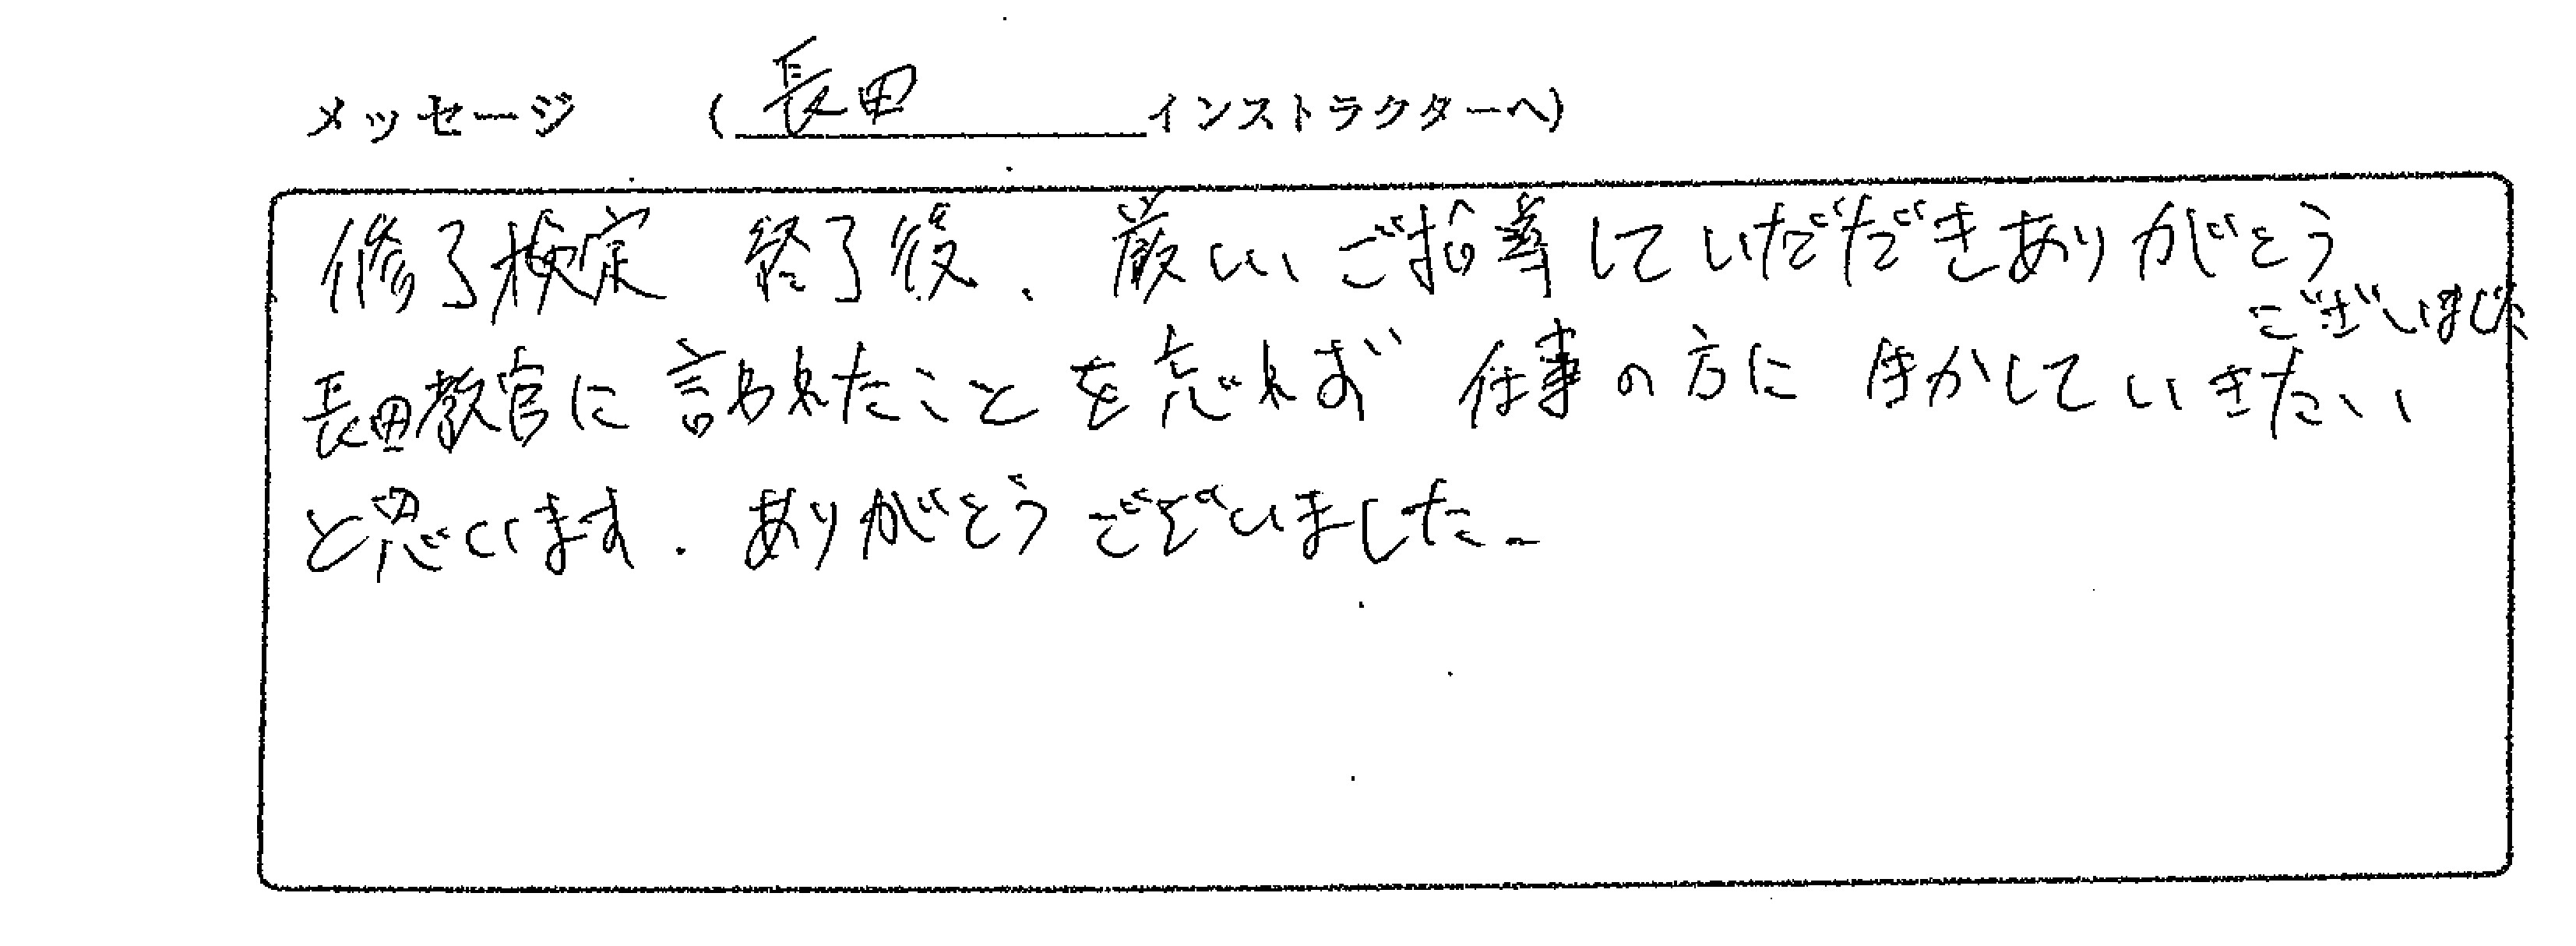 メッセージ （長田 インストラクターへ）
修了検定 終了後、厳しいご指導していただだきありがとう
ございました
長田教官に言われたことを忘れず 仕事の方に 生かしていきたい
と思います。ありがとうございました。